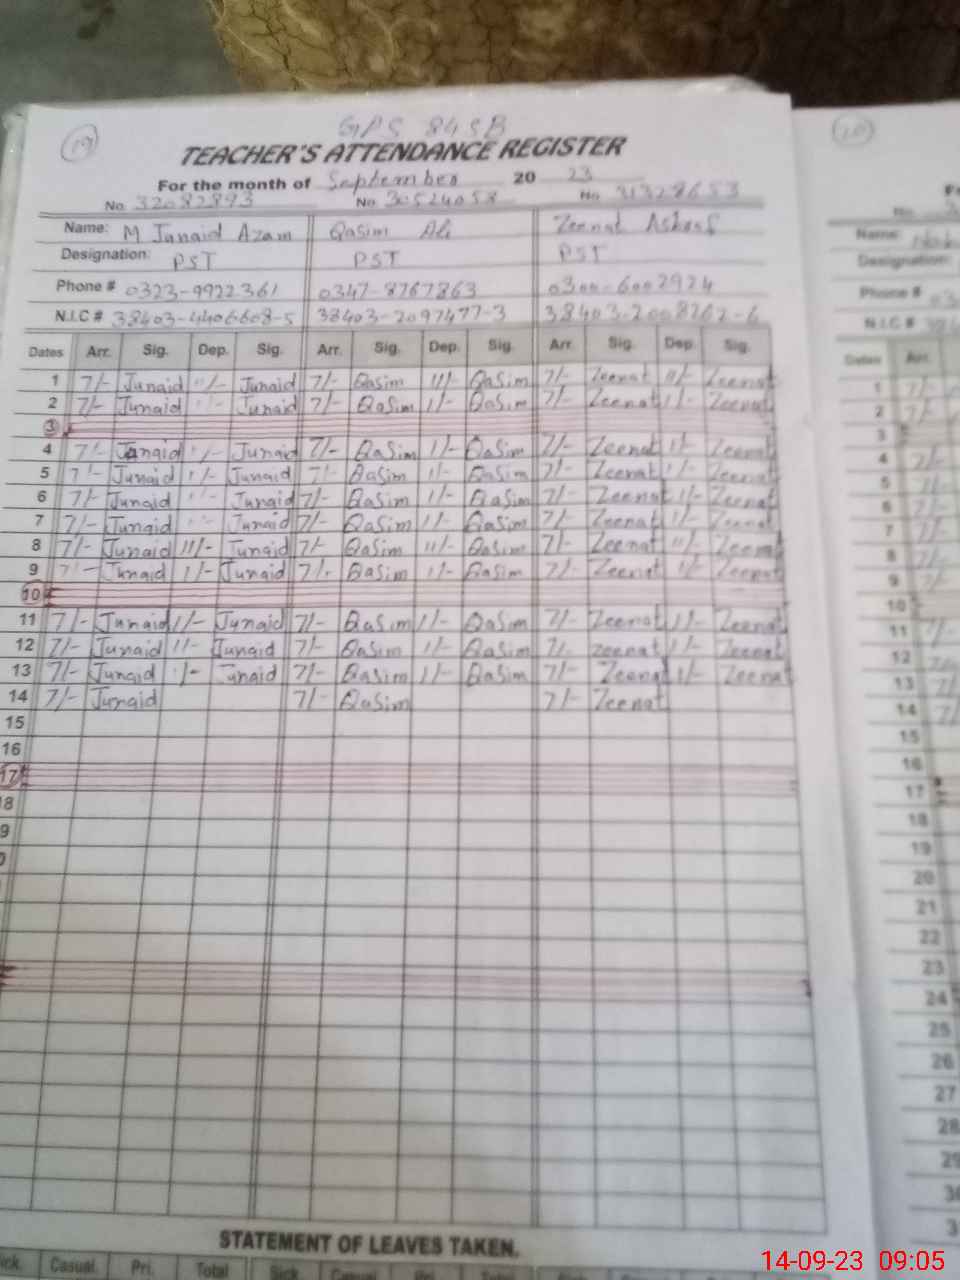 19
GPS 84SB
20
TEACHER'S ATTENDANCE REGISTER
For the month of September 20 23
No 32082893 No 30524058 No 31328653
Name: M Junaid Azam Qasim Ali Zeenat Ashraf
Designation: PST PST PST
Phone # 0323-9922361 0347-8767863 0300-6002924
N.I.C # 38403-4406608-5 38403-2097477-3 38403-2008262-6
Dates Arr. Sig. Dep. Sig. Arr. Sig. Dep. Sig. Arr. Sig. Dep. Sig.
1 7/- Junaid 11/- Junaid 7/- Qasim 11/- Qasim 7/- Zeenat 11/- Zeenat
2 7/- Junaid Junaid 7/- Qasim 1/- Qasim 7/- Zeenat 1/- Zeenat
3
4 7/- Junaid 1/- Junaid 7/- Qasim 1/- Qasim 7/- Zeenat 1/- Zeenat
5 7/- Junaid 1/- Junaid 7/- Qasim 1/- Qasim 7/- Zeenat 1/- Zeenat
6 7/- Junaid Junaid 7/- Qasim 1/- Qasim 7/- Zeenat 1/- Zeenat
7 7/- Junaid Junaid 7/- Qasim 1/- Qasim 7/- Zeenat 1/- Zeenat
8 7/- Junaid 11/- Junaid 7/- Qasim 11/- Qasim 7/- Zeenat 11/- Zeenat
9 7/- Junaid 1/- Junaid 7/- Qasim 1/- Qasim 7/- Zeenat 1/- Zeenat
10
11 7/- Junaid 1/- Junaid 7/- Qasim 1/- Qasim 7/- Zeenat 1/- Zeenat
12 7/- Junaid 11/- Junaid 7/- Qasim 1/- Qasim 7/- zeenat 1/- Zeenat
13 7/- Junaid 1/- Junaid 7/- Qasim 1/- Qasim 7/- Zeenat 1/- Zeenat
14 7/- Junaid 7/- Qasim 7/- Zeenat
15
16
17
8
9
0
STATEMENT OF LEAVES TAKEN.
ick. Casual. Pri. Total Sick. Casual. Pri. Total
No.
Name:
Designation:
Phone #
N.I.C #
Dates Arr.
1 7/-
2 7/-
3
4 7/-
5 7/-
6 7/-
7 7/-
8 7/-
9 7/-
10
11 7/-
12 7/-
13 7/-
14 7/
15
16
17
18
19
20
21
22
23
24
25
26
27
28
29
30
3
14-09-23 09:05